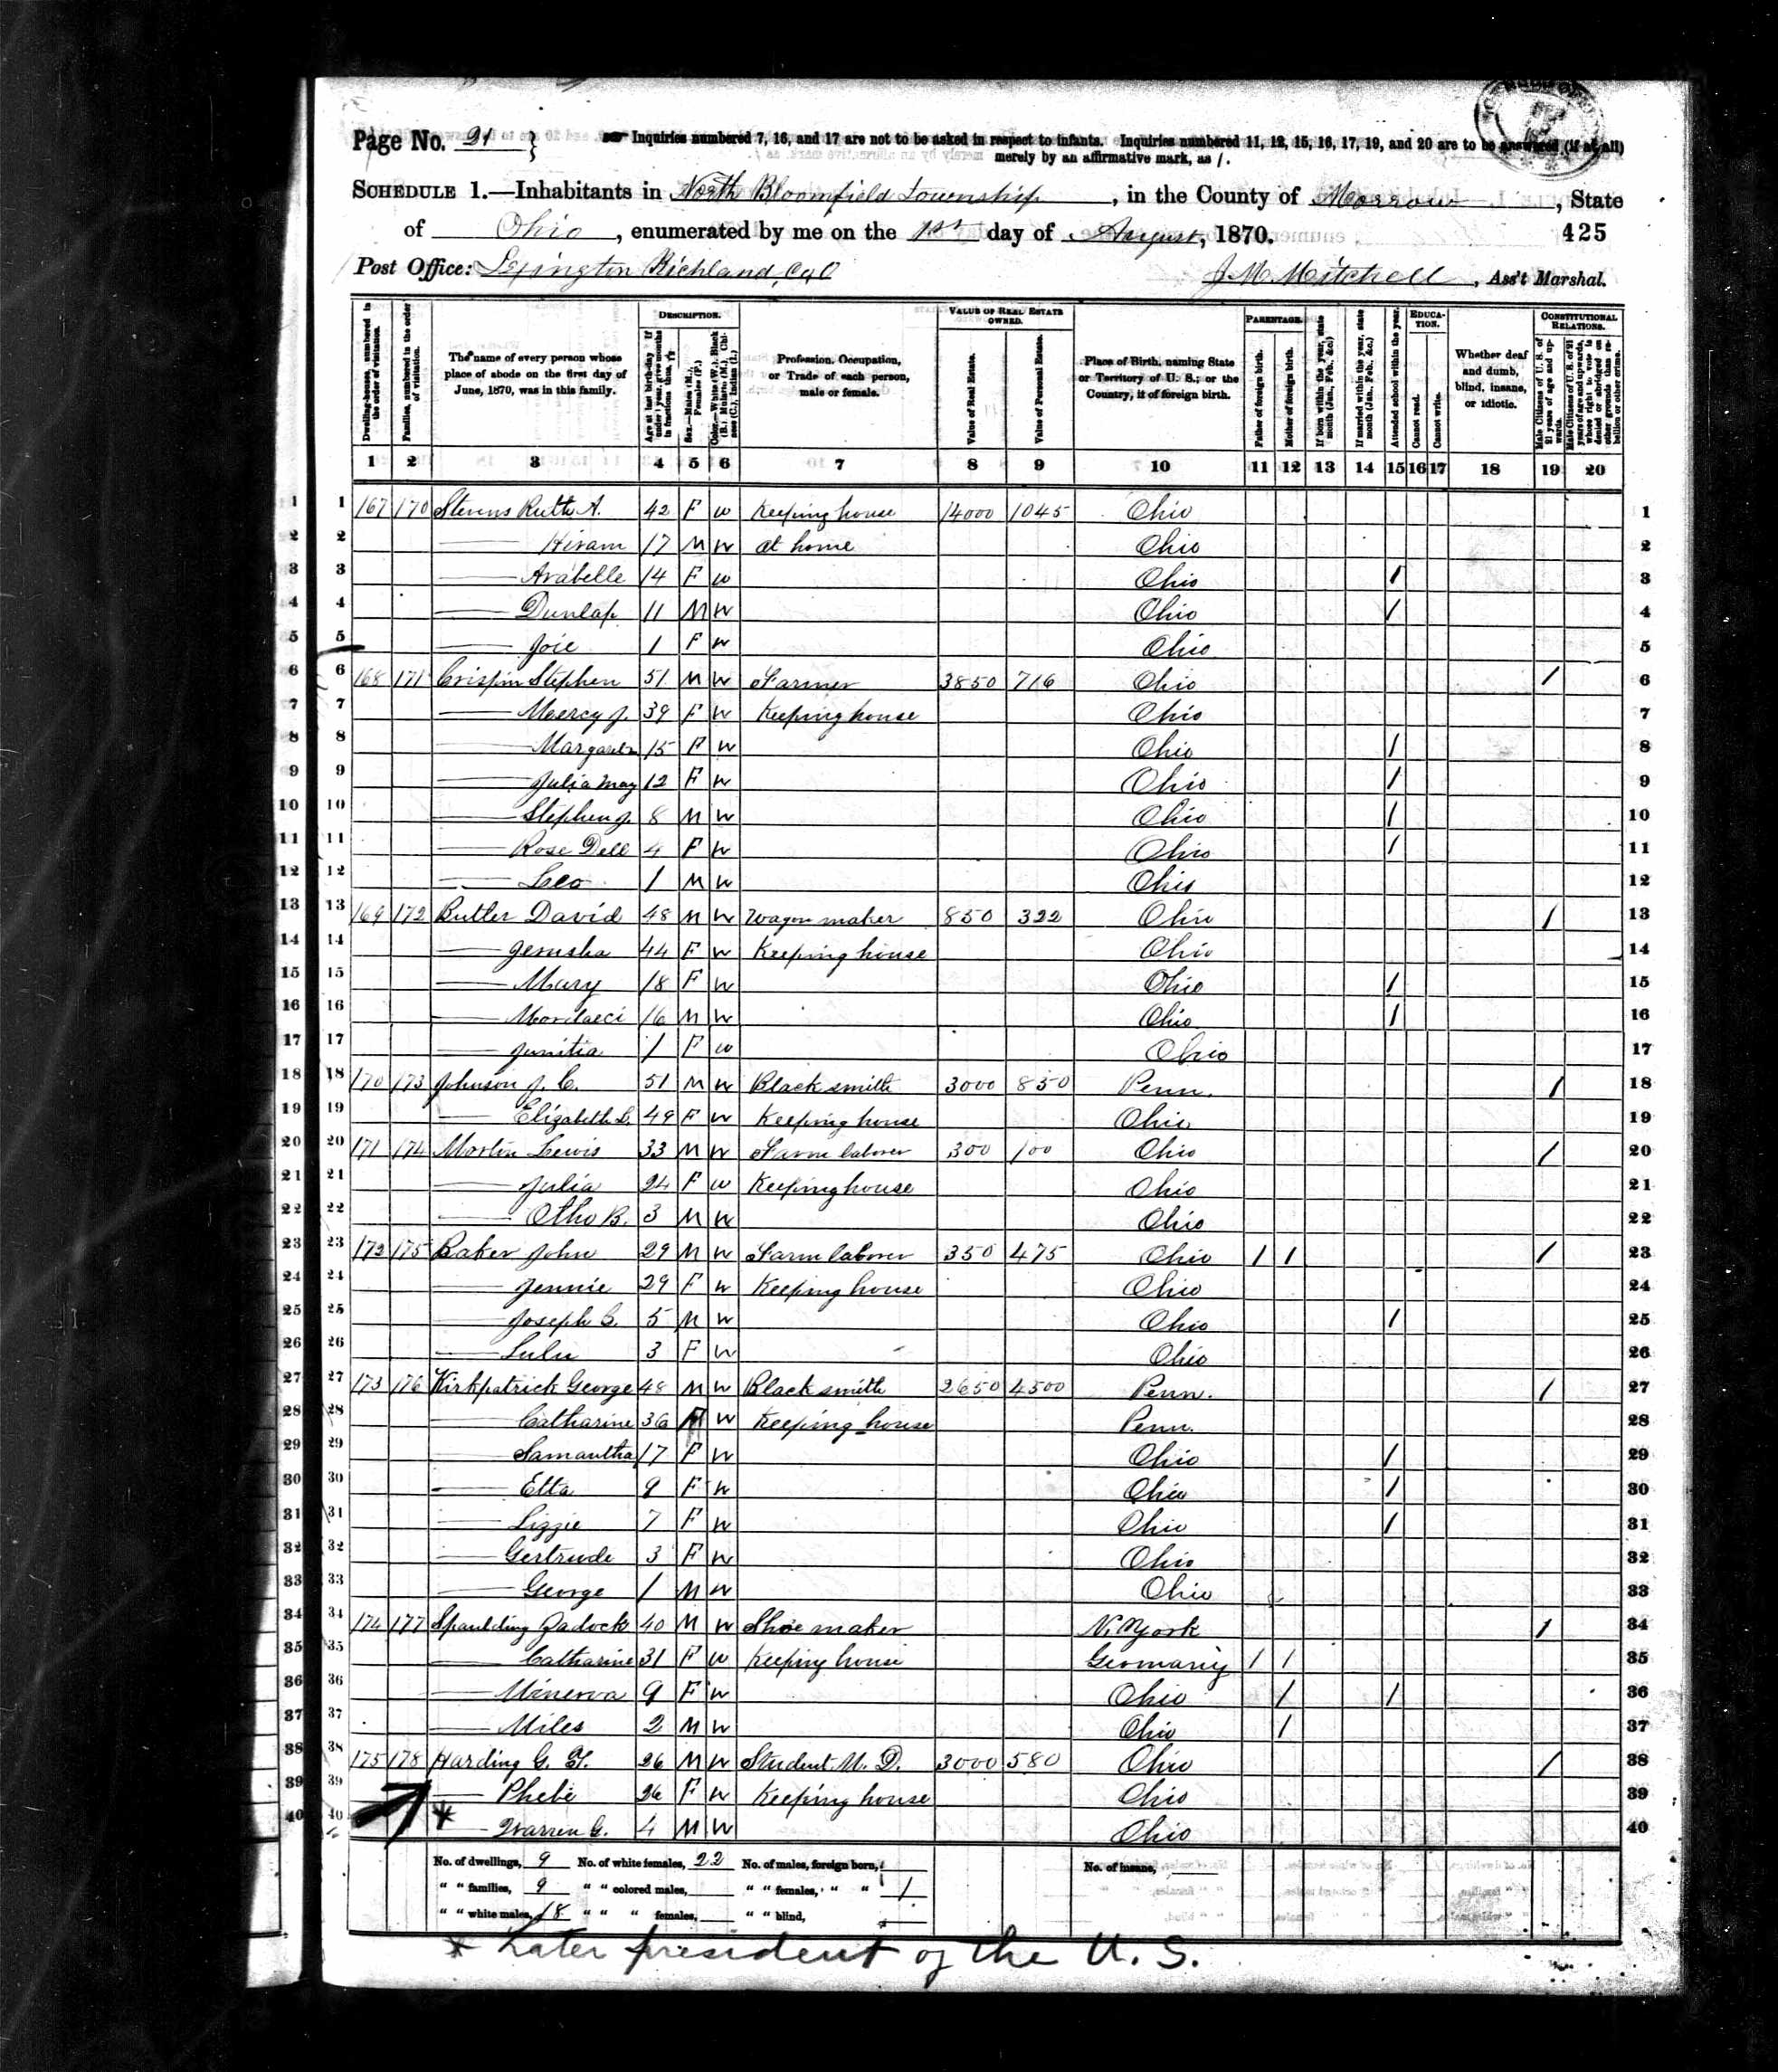 Page No. 21
Inquiries numbered 7, 16, and 17 are not to be asked in respect to infants. Inquiries numbered 11, 12, 15, 16, 17, 19, and 20 are to be answered (if at all)
merely by an affirmative mark, as /.
SCHEDULE 1.—Inhabitants in North Bloomfield Township, in the County of Morrow, State
of Ohio, enumerated by me on the 1st day of August, 1870.
425
Post Office: Lexington Richland Co, O
J. M. Mitchell, Ass't Marshal.
Dwelling-houses, numbered in the order of visitation.
Families, numbered in the order of visitation.
The name of every person whose place of abode on the first day of June, 1870, was in this family.
DESCRIPTION.
Age at last birth-day. If under 1 year, give months in fractions, thus,
Sex.—Males (M.), Females (F.)
Color.—White (W.), Black (B.), Mulatto (M.), Chinese (C.), Indian (I.)
Profession, Occupation, or Trade of each person, male or female.
VALUE OF REAL ESTATE OWNED.
Value of Real Estate.
Value of Personal Estate.
Place of Birth, naming State or Territory of U. S.; or the Country, if of foreign birth.
PARENTAGE.
Father of foreign birth.
Mother of foreign birth.
If born within the year, state month (Jan. Feb., &c.)
If married within the year, state month (Jan. Feb., &c.)
Attended school within the year.
EDUCATION.
Cannot read.
Cannot write.
Whether deaf and dumb, blind, insane, or idiotic.
CONSTITUTIONAL RELATIONS.
Male Citizens of U. S. of 21 years of age and upwards.
Male Citizens of U. S. of 21 years of age and upwards, whose right to vote is denied or abridged on other grounds than rebellion or other crime.
1 2 3 4 5 6 7 8 9 10 11 12 13 14 15 16 17 18 19 20
1 1 167 170 Stevens Ruth A. 42 F W Keeping house 14000 1045 Ohio 1
2 2 — Hiram 17 M W at home Ohio 2
3 3 — Arabelle 14 F W Ohio / 3
4 4 — Dunlap 11 M W Ohio / 4
5 5 — Joie 1 F W Ohio 5
6 6 168 171 Crispin Stephen 51 M W Farmer 3850 716 Ohio / 6
7 7 — Mercy J. 39 F W Keeping house Ohio 7
8 8 — 15 F W Ohio / 8
9 9 — Julia May 12 F W Ohio / 9
10 10 — Stephen J. 8 M W Ohio / 10
11 11 — Rose Dell 4 F W Ohio / 11
12 12 — Leo 1 M W Ohio 12
13 13 169 172 Butler David 48 M W Wagon maker 850 322 Ohio / 13
14 14 — Jerusha 44 F W Keeping house Ohio 14
15 15 — Mary 18 F W Ohio / 15
16 16 — Mordaeci 16 M W Ohio / 16
17 17 — Junitia 1 F W Ohio 17
18 18 170 173 Johnson J. C. 51 M W Black smith 3000 850 Penn. / 18
19 19 — Elizabeth L. 49 F W Keeping house Ohio 19
20 20 171 174 Martin Lewis 33 M W Farm laborer 300 100 Ohio / 20
21 21 — Julia 24 F W Keeping house Ohio 21
22 22 — Otho B. 3 M W Ohio 22
23 23 172 175 Baker John 29 M W Farm laborer 350 475 Ohio / / / 23
24 24 — Jennie 29 F W Keeping house Ohio 24
25 25 — Joseph C. 5 M W Ohio / 25
26 26 — Lulu 3 F W Ohio 26
27 27 173 176 Kirkpatrick George 48 M W Black smith 2650 4500 Penn. / 27
28 28 — Catharine 36 F W Keeping house Penn. 28
29 29 — Samantha 17 F W Ohio / 29
30 30 — Etta 9 F W Ohio / 30
31 31 — Lizzie 7 F W Ohio / 31
32 32 — Gertrude 3 F W Ohio 32
33 33 — George 1 M W Ohio 33
34 34 174 177 Spaulding Zadock 40 M W Shoe maker N. York / 34
35 35 — Catharine 31 F W Keeping house Germany / / 35
36 36 — Minerva 9 F W Ohio / / 36
37 37 — Miles 2 M W Ohio / 37
38 38 175 178 Harding G. T. 26 M W Student M. D. 3000 580 Ohio / 38
39 39 — Phebe 26 F W Keeping house Ohio 39
40 40 * — Warren G. 4 M W Ohio 40
No. of dwellings, 9 No. of white females, 22 No. of males, foreign born, No. of insane,
" " families, 9 " " colored males, " " females, " " 1
" " white males, 18 " " " females, " " blind,
* Later president of the U. S.